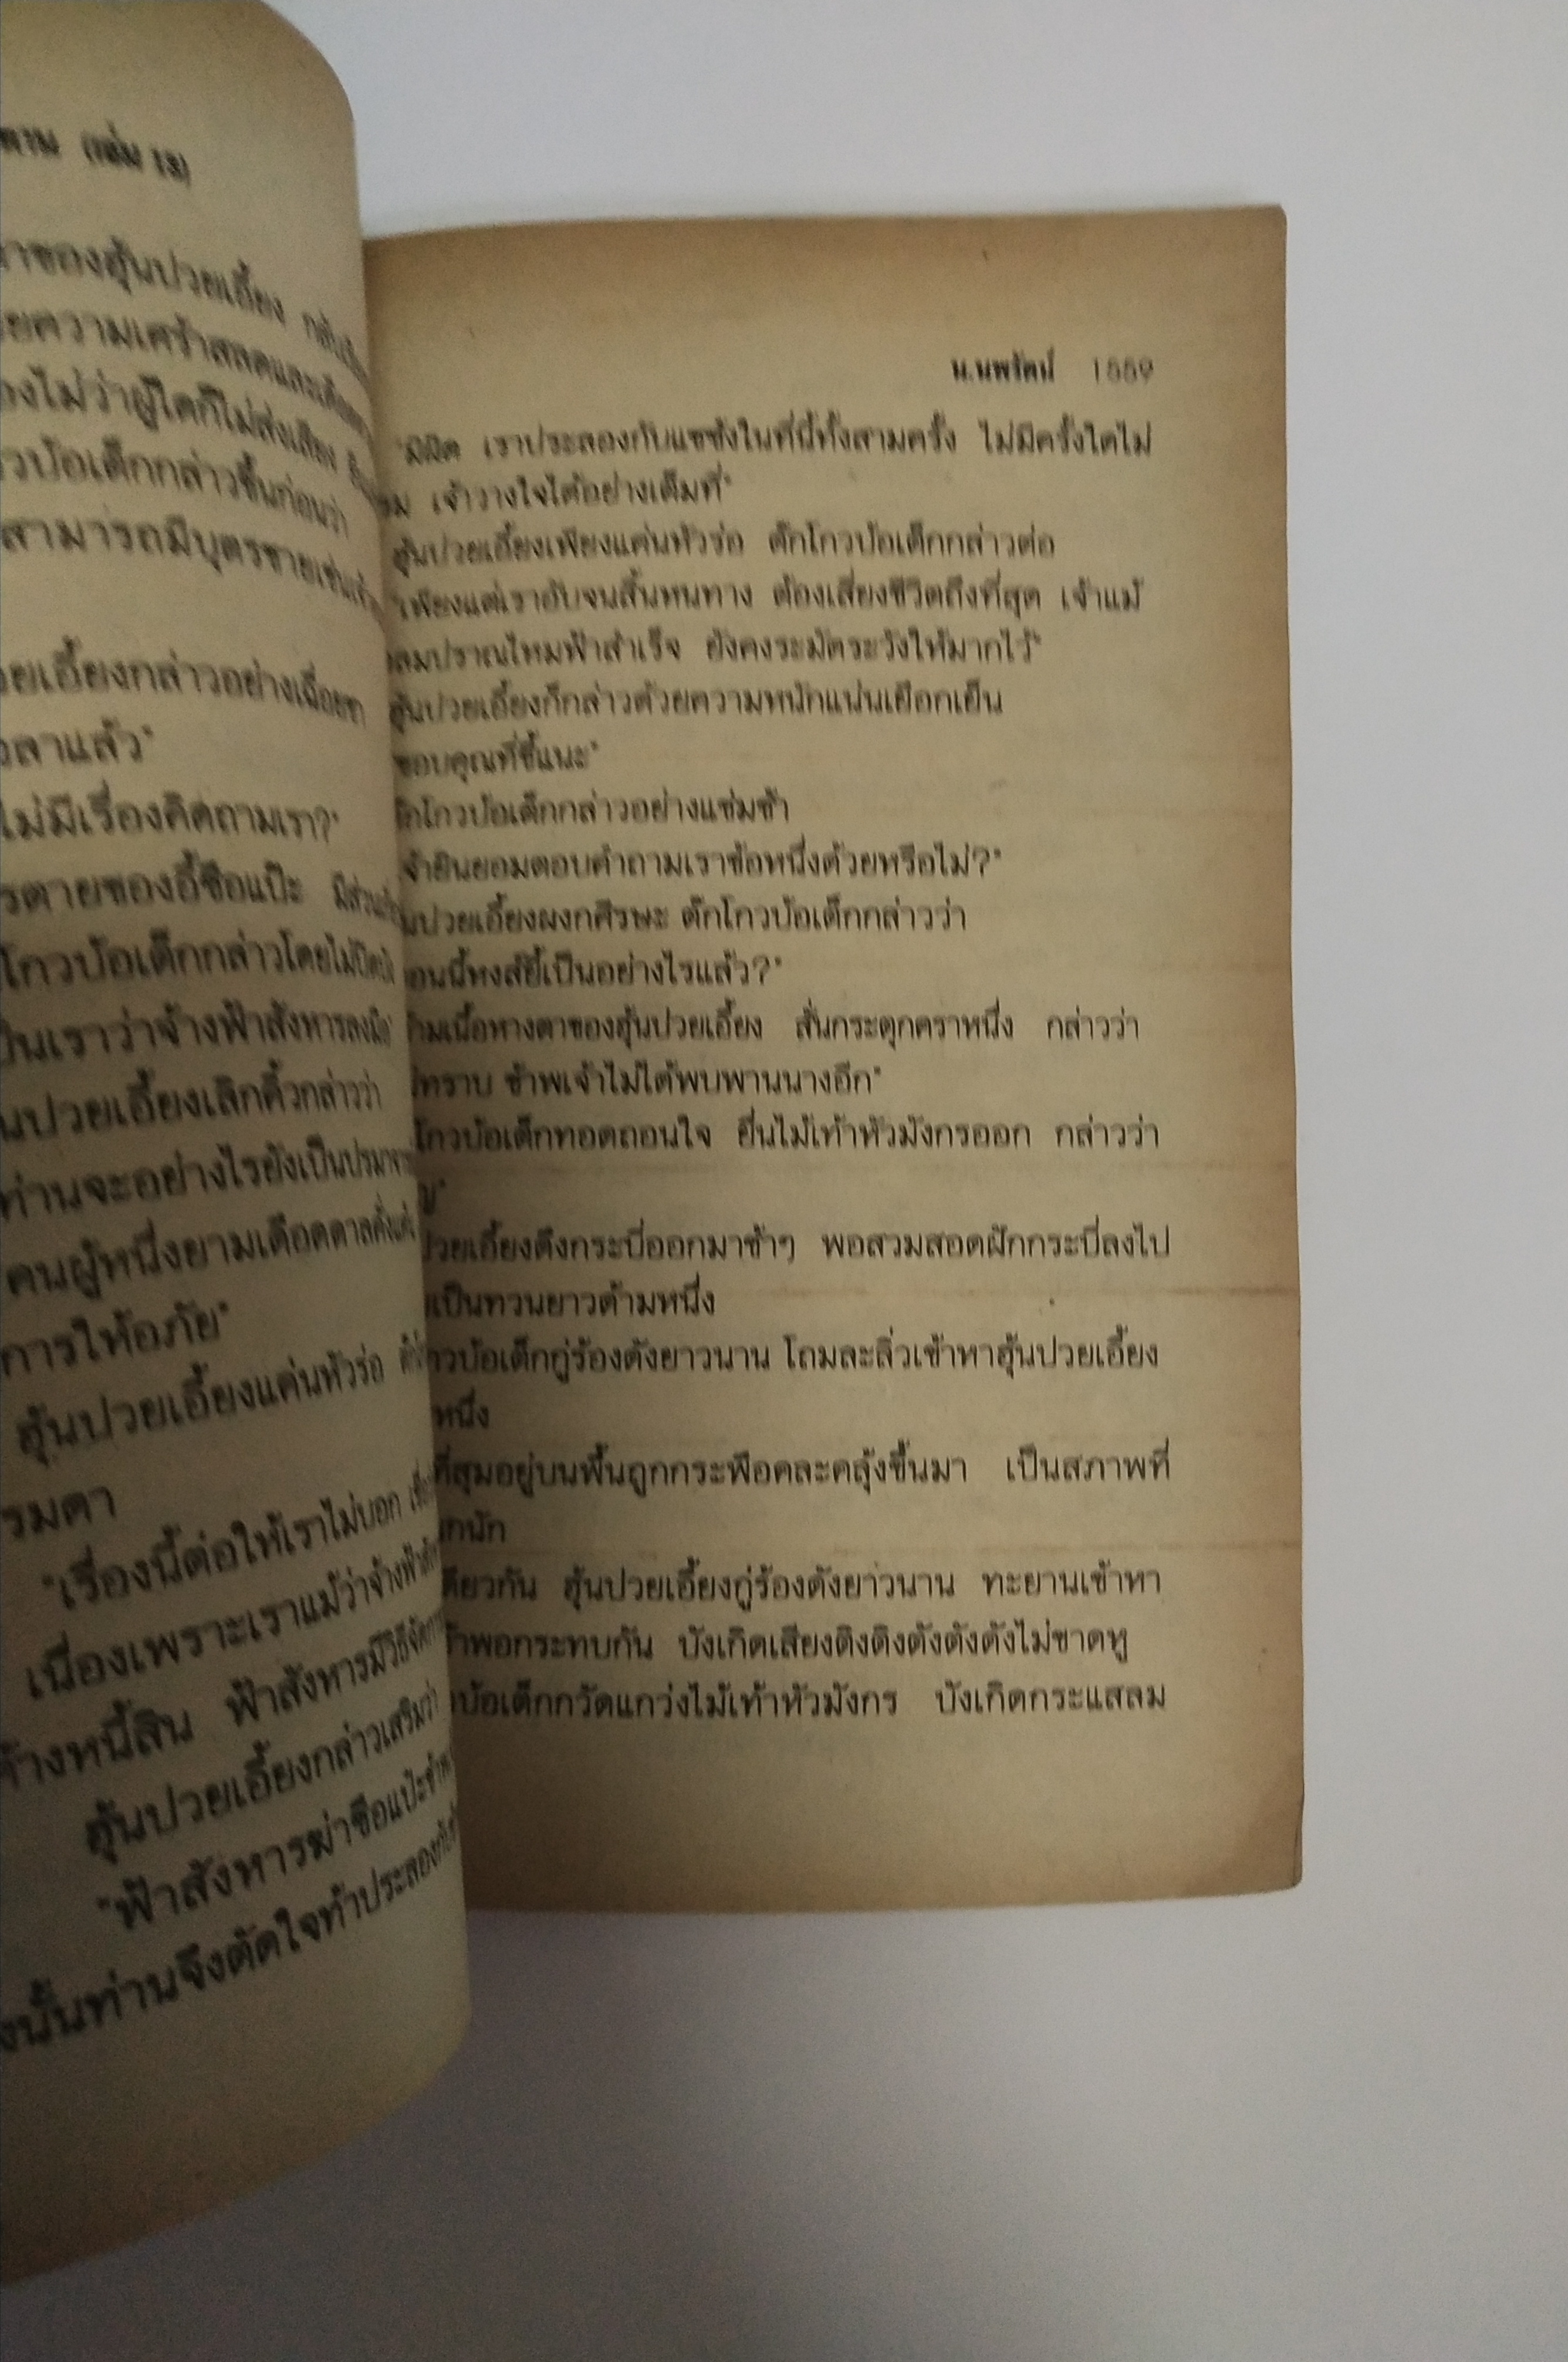 (เล่ม 13)
าของฮุ้นปวยเอี้ยง
ยความเศร้าสลดและ
องไม่ว่าผู้ใดก็ไม่ส่งเสียง
วบ้อเต็กกล่าวขึ้นก่อนว่า
สามารถมีบุตรชายเช่น
วยเอี้ยงกล่าวอย่างเฉื่อยชา
วลาแล้ว"
ไม่มีเรื่องคิดถามเรา?"
รตายของอี้ซือแป๊ะ
โกวบ้อเต็กกล่าวโดยไม่
ป็นเราว่าจ้างฟ้าสังหารลงมือ"
นปวยเอี้ยงเลิกคิ้วกล่าวว่า
ท่านจะอย่างไรยังเป็น
คนผู้หนึ่งยามเดือดดาล
การให้อภัย"
ฮุ้นปวยเอี้ยงแค่นหัวร่อ
รมดา
"เรื่องนี้ต่อให้เราไม่บอก
เนื่องเพราะเราแม้ว่าจ้าง
ค้างหนี้สิน ฟ้าสังหารมีวิธี
ฮุ้นปวยเอี้ยงกล่าวเสริมว่า
"ฟ้าสังหารฆ่าซือแป๊ะ
งนั้นท่านจึงตัดใจท้าประลอง
น.นพรัตน์ 1559
"มิผิด เราประลองกับแชซังในที่นี้ทั้งสามครั้ง ไม่มีครั้งใดไม่
เจ้าวางใจได้อย่างเต็มที่"
ฮุ้นปวยเอี้ยงเพียงแค่นหัวร่อ ตักโกวบ้อเต็กกล่าวต่อ
"เพียงแต่เราอับจนสิ้นหนทาง ต้องเสี่ยงชีวิตถึงที่สุด เจ้าแม้
ลมปราณไหมฟ้าสำเร็จ ยังคงระมัดระวังให้มากไว้"
ฮุ้นปวยเอี้ยงก็กล่าวด้วยความหนักแน่นเยือกเย็น
ขอบคุณที่ชี้แนะ"
ักโกวบ้อเต็กกล่าวอย่างแช่มช้า
จ้ายินยอมตอบคำถามเราข้อหนึ่งด้วยหรือไม่?"
นปวยเอี้ยงผงกศีรษะ ตักโกวบ้อเต็กกล่าวว่า
อนนี้หงส์ยี้เป็นอย่างไรแล้ว?"
้ามเนื้อหางตาของฮุ้นปวยเอี้ยง สั่นกระตุกคราหนึ่ง กล่าวว่า
่ทราบ ข้าพเจ้าไม่ได้พบพานนางอีก"
โกวบ้อเต็กทอดถอนใจ ยื่นไม้เท้าหัวมังกรออก กล่าวว่า
ปวยเอี้ยงดึงกระบี่ออกมาช้าๆ พอสวมสอดฝักกระบี่ลงไป
เป็นทวนยาวด้ามหนึ่ง
าวบ้อเต็กกู่ร้องดังยาวนาน โถมละลิ่วเข้าหาฮุ้นปวยเอี้ยง
หนึ่ง
ที่สุมอยู่บนพื้นถูกกระพือคละคลุ้งขึ้นมา เป็นสภาพที่
กนัก
เดียวกัน ฮุ้นปวยเอี้ยงกู่ร้องดังยาวนาน ทะยานเข้าหา
ท้าพอกระทบกัน บังเกิดเสียงติงติงดังดังดังไม่ขาดหู
วบ้อเต็กกวัดแกว่งไม้เท้าหัวมังกร บังเกิดกระแสลม